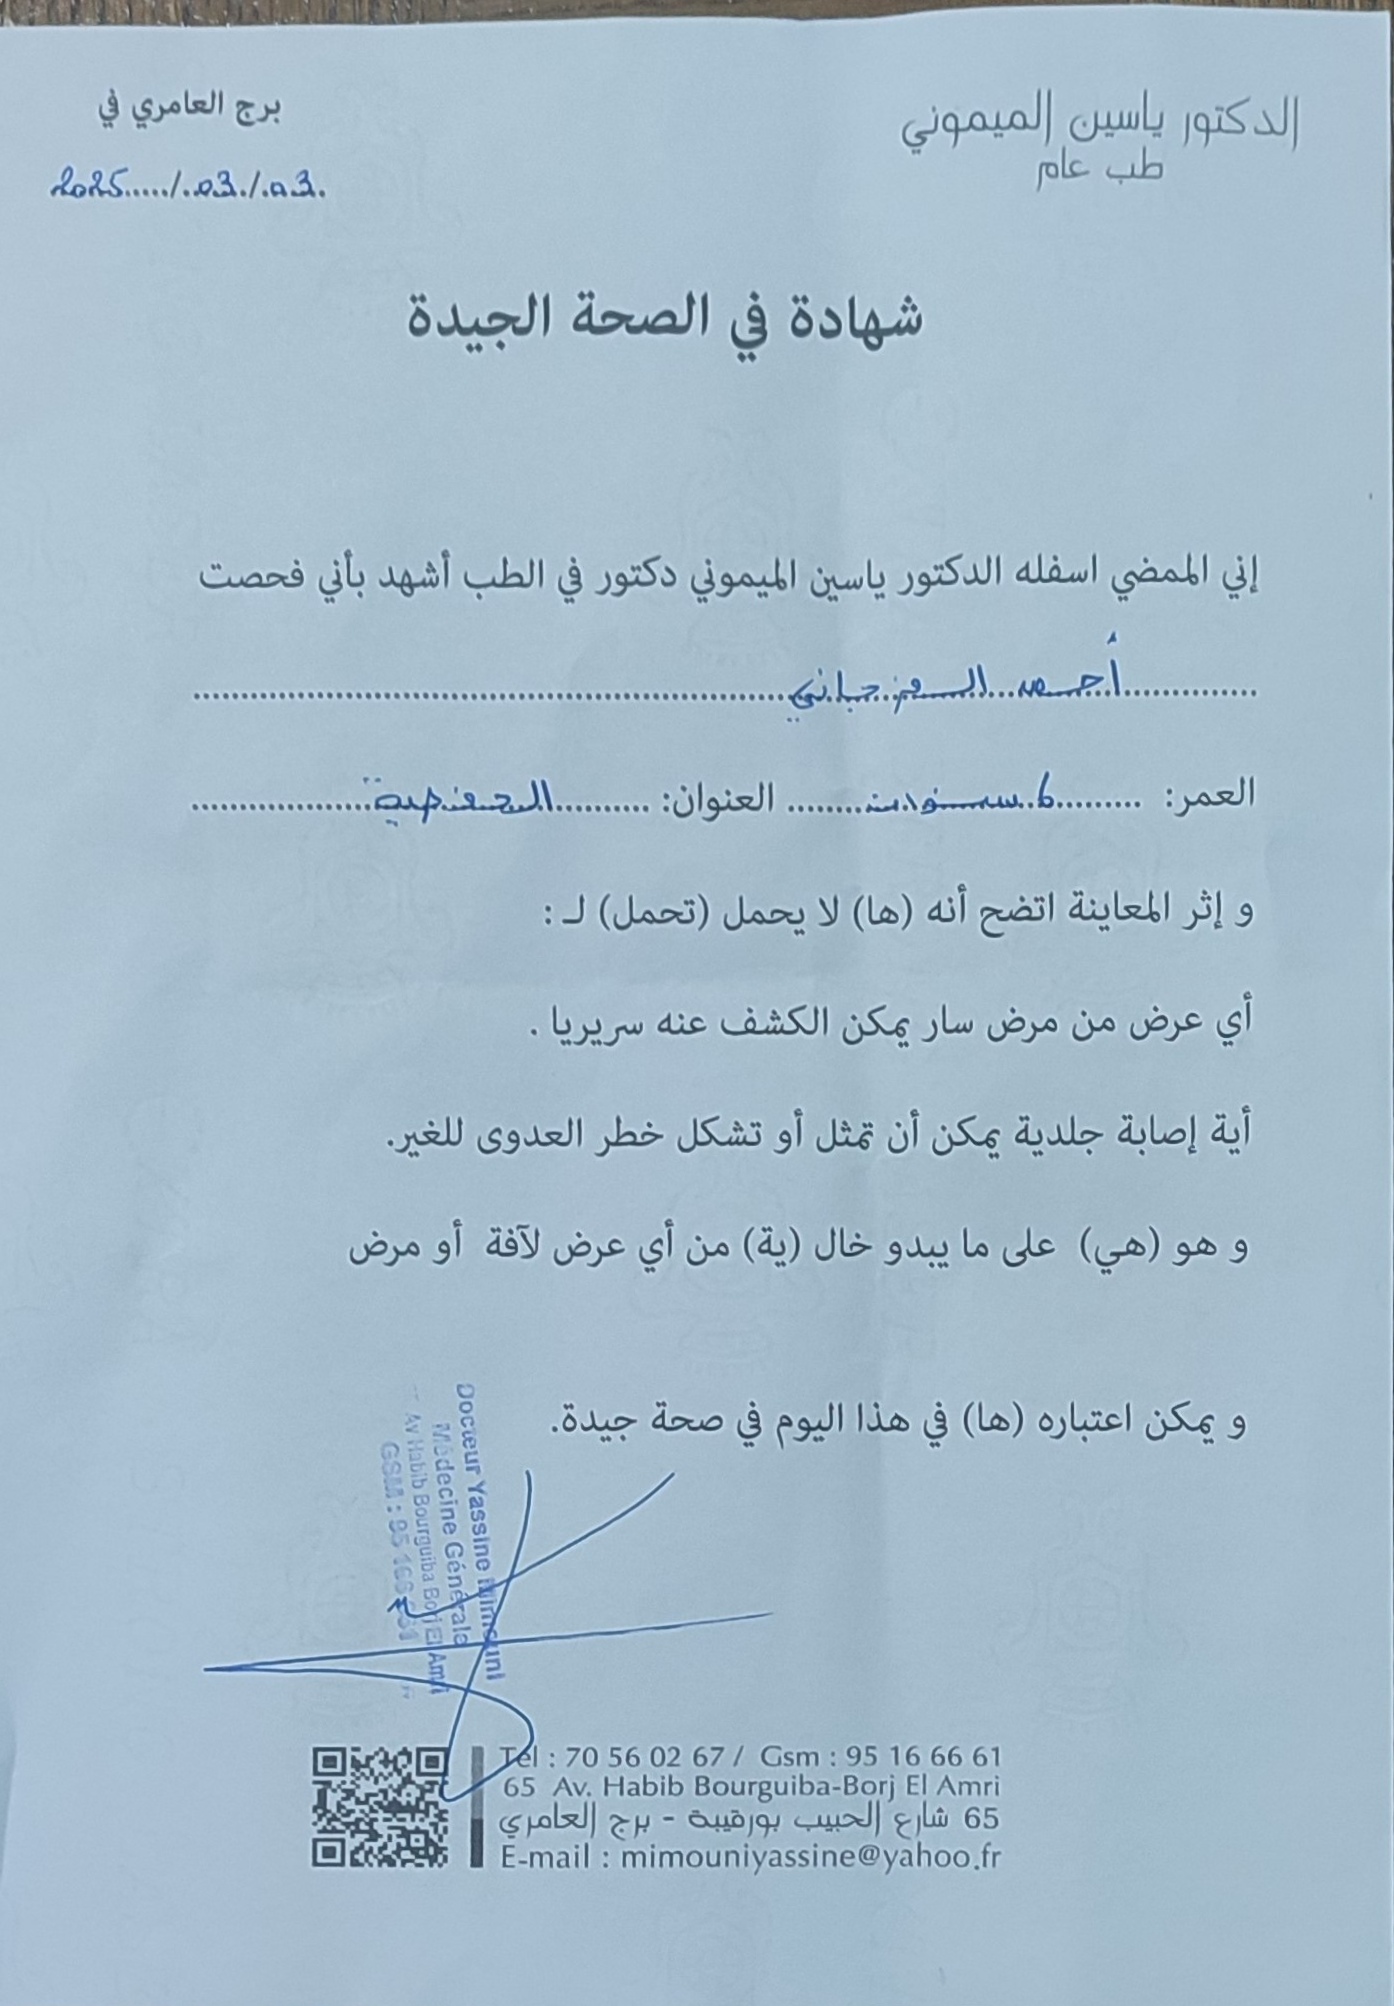 الدكتور ياسين الميموني
طب عام
برج العامري في
2025...../.03./.03.
شهادة في الصحة الجيدة
إني الممضي اسفله الدكتور ياسين الميموني دكتور في الطب أشهد بأني فحصت
أحمد المرجاني
العمر: 6 سنوات العنوان:
و إثر المعاينة اتضح أنه (ها) لا يحمل (تحمل) لـ :
أي عرض من مرض سار يمكن الكشف عنه سريريا .
أية إصابة جلدية يمكن أن تمثل أو تشكل خطر العدوى للغير.
و هو (هي) على ما يبدو خال (ية) من أي عرض لآفة أو مرض
و يمكن اعتباره (ها) في هذا اليوم في صحة جيدة.
Docteur Yassine Mimouni
Médecine Générale
Av Habib Bourguiba Borj El Amri
GSM : 95 166 661
Tél : 70 56 02 67 / Gsm : 95 16 66 61
65 Av. Habib Bourguiba-Borj El Amri
65 شارع الحبيب بورقيبة - برج العامري
E-mail : mimouniyassine@yahoo.fr